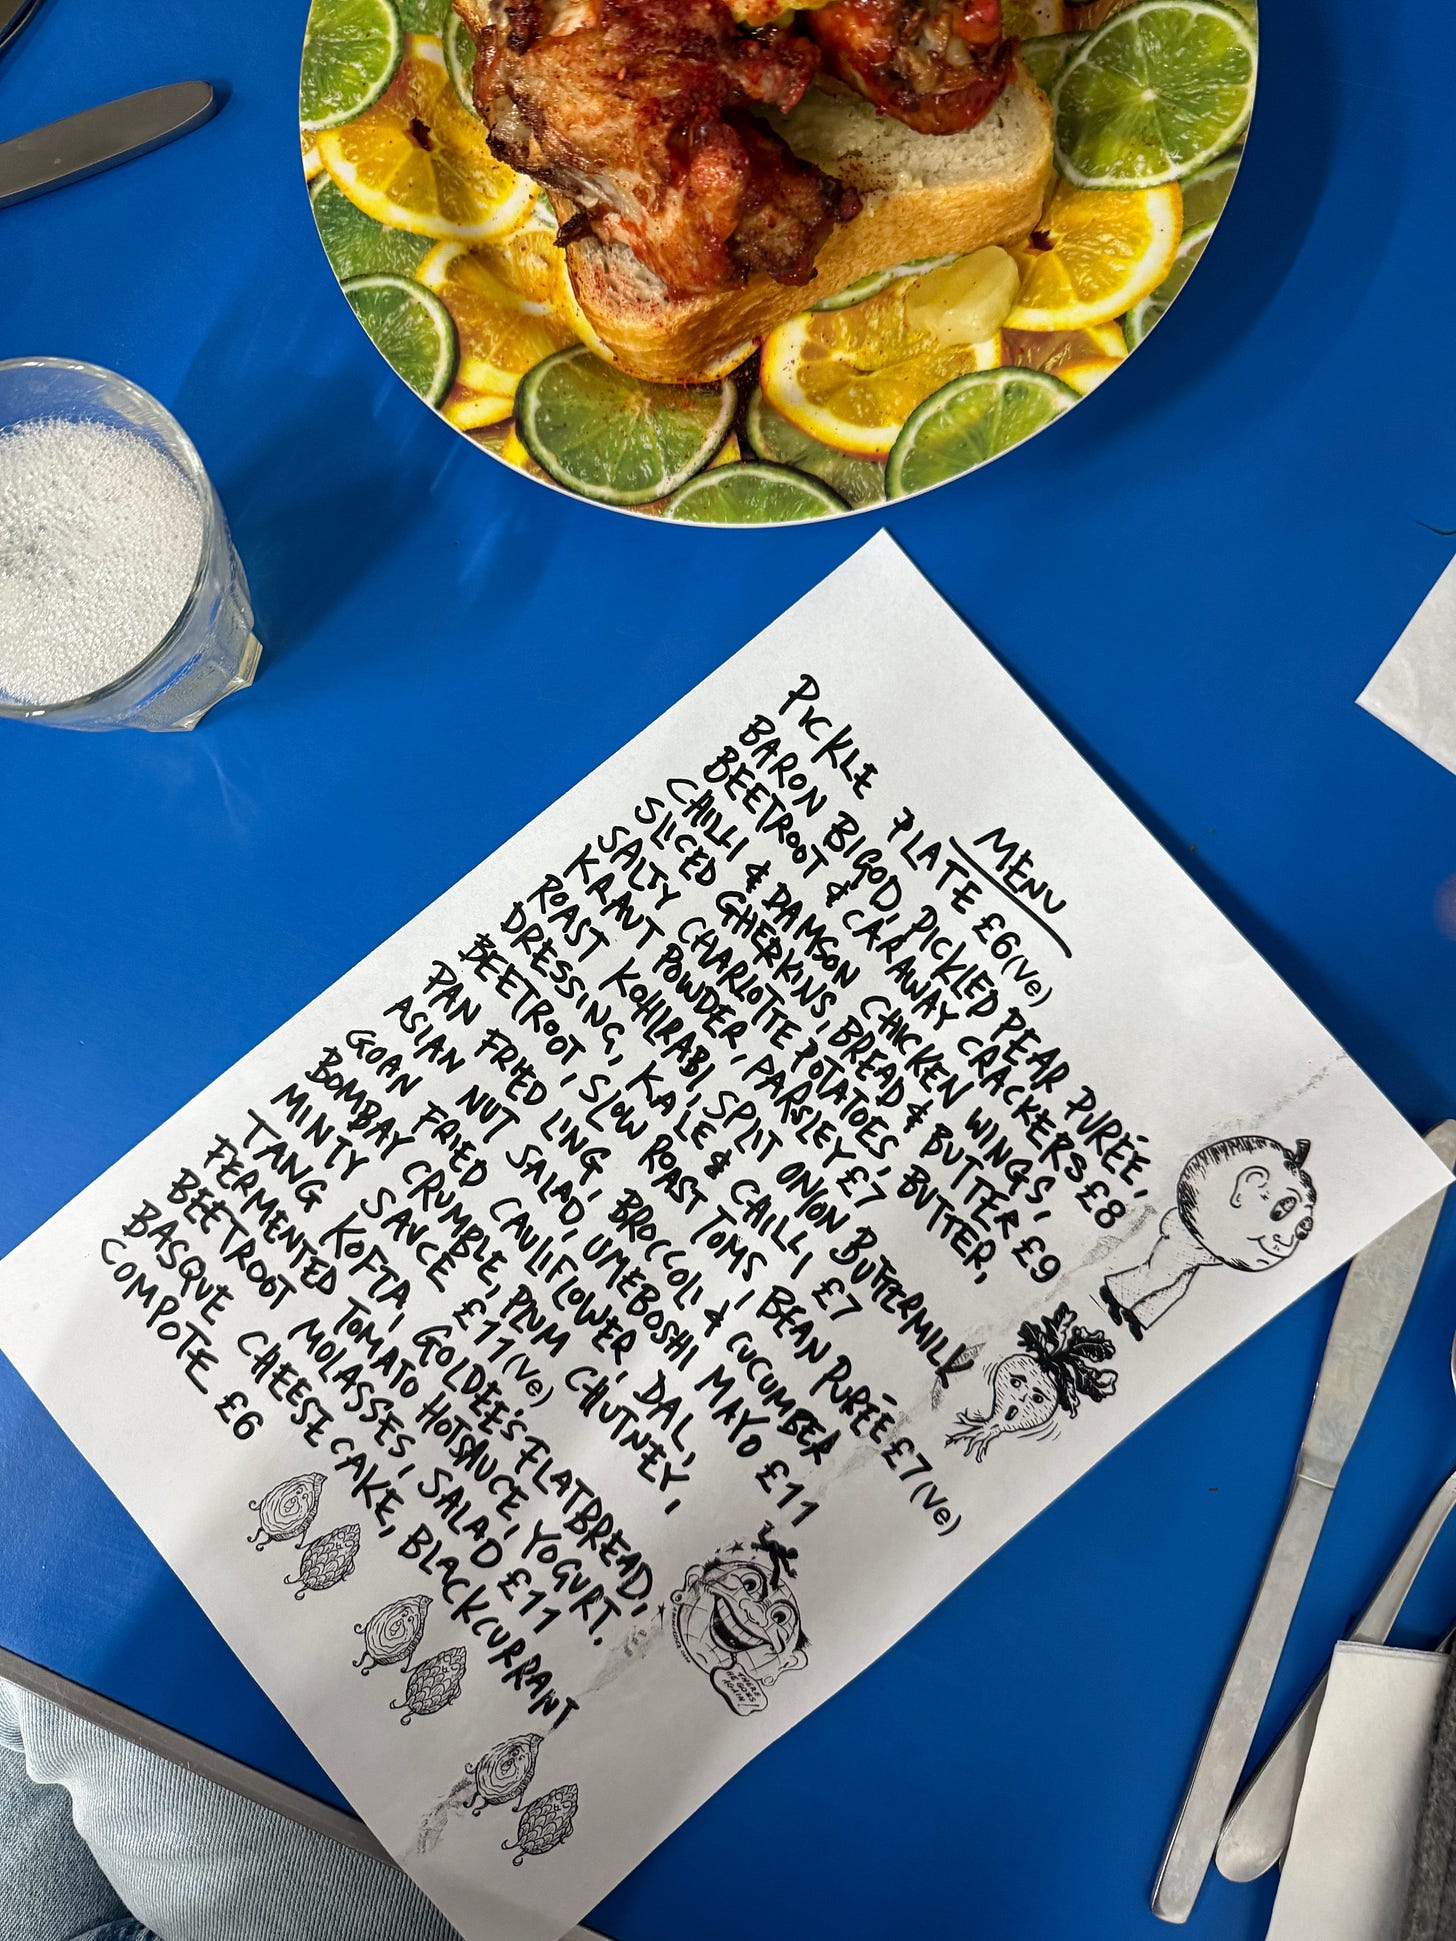 MENU
PICKLE PLATE £6(Ve)
BARON BIGOD, PICKLED PEAR PURÉE,
BEETROOT & CARAWAY CRACKERS £8
CHILLI & DAMSON CHICKEN WINGS,
SLICED GHERKINS, BREAD & BUTTER £9
SALTY CHARLOTTE POTATOES, BUTTER,
KRAUT POWDER, PARSLEY £7
ROAST KOHLRABI, SPLIT ONION BUTTERMILK
DRESSING, KALE & CHILLI £7
BEETROOT, SLOW ROAST TOMS, BEAN PURÉE £7(Ve)
PAN FRIED LING, BROCCOLI & CUCUMBER
ASIAN NUT SALAD, UMEBOSHI MAYO £11
GOAN FRIED CAULIFLOWER, DAL,
BOMBAY CRUMBLE, PLUM CHUTNEY,
MINTY SAUCE £11(Ve)
TANG KOFTA, GOLDEE'S FLATBREAD,
FERMENTED TOMATO HOTSAUCE, YOGURT.
BEETROOT MOLASSES, SALAD £11
BASQUE CHEESE CAKE, BLACKCURRANT
COMPOTE £6
THERE
HE GOES
AGAIN!